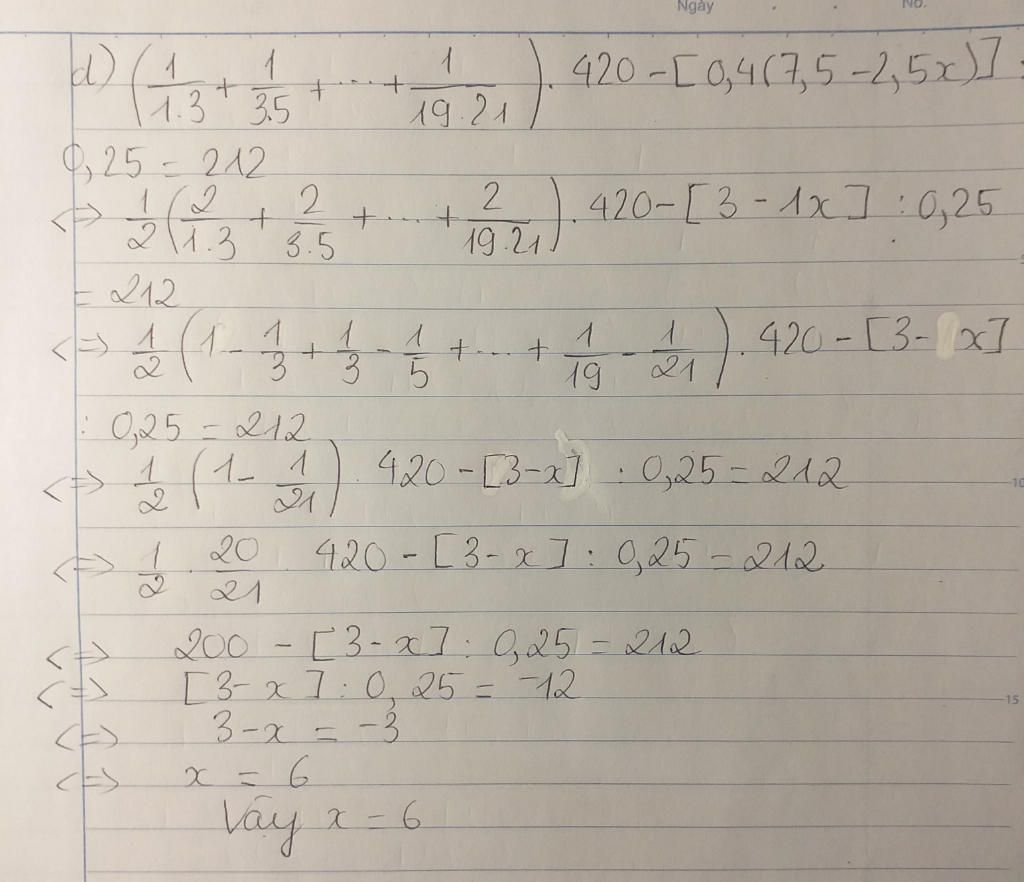 Ngày . . No.
d) (1/1.3 + 1/3.5 + ... + 1/19.21) . 420 - [0,4(7,5 - 2,5x)] :
0,25 = 212
<=> 1/2 (2/1.3 + 2/3.5 + ... + 2/19.21) . 420 - [3 - 1x] : 0,25
= 212
<=> 1/2 (1 - 1/3 + 1/3 - 1/5 + ... + 1/19 - 1/21) . 420 - [3 - x]
: 0,25 = 212
<=> 1/2 (1 - 1/21) . 420 - [3-x] : 0,25 = 212
<=> 1/2 . 20/21 . 420 - [3 - x] : 0,25 = 212
<=> 200 - [3 - x] : 0,25 = 212
<=> [3 - x] : 0,25 = -12
<=> 3 - x = -3
<=> x = 6
Vậy x = 6
10
15